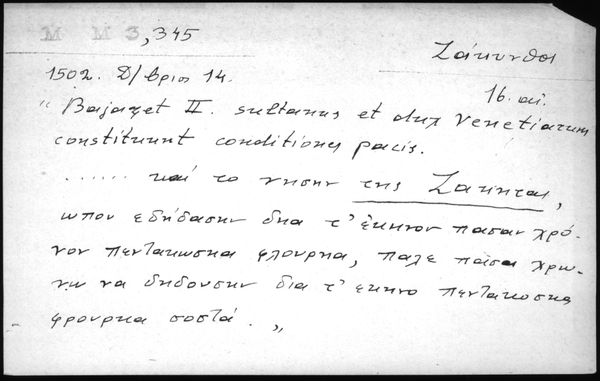 M M 3,345
Ζάκυνθοι
1502. Δ/βριος 14.
16. αι.
"Bajazet II. sultanus et dux Venetiarum
constituunt conditiones pacis.
...... καί το νησην της Ζακηται,
ωπου εδήδασην δηα τ' έκηνον πασαν χρό-
νον πεντακωσηα φλουρηα, παλε πάσα χρω-
νω να δηδουσην δια τ' εκηνο πεντακωσηα
φρουρηα σοστά."